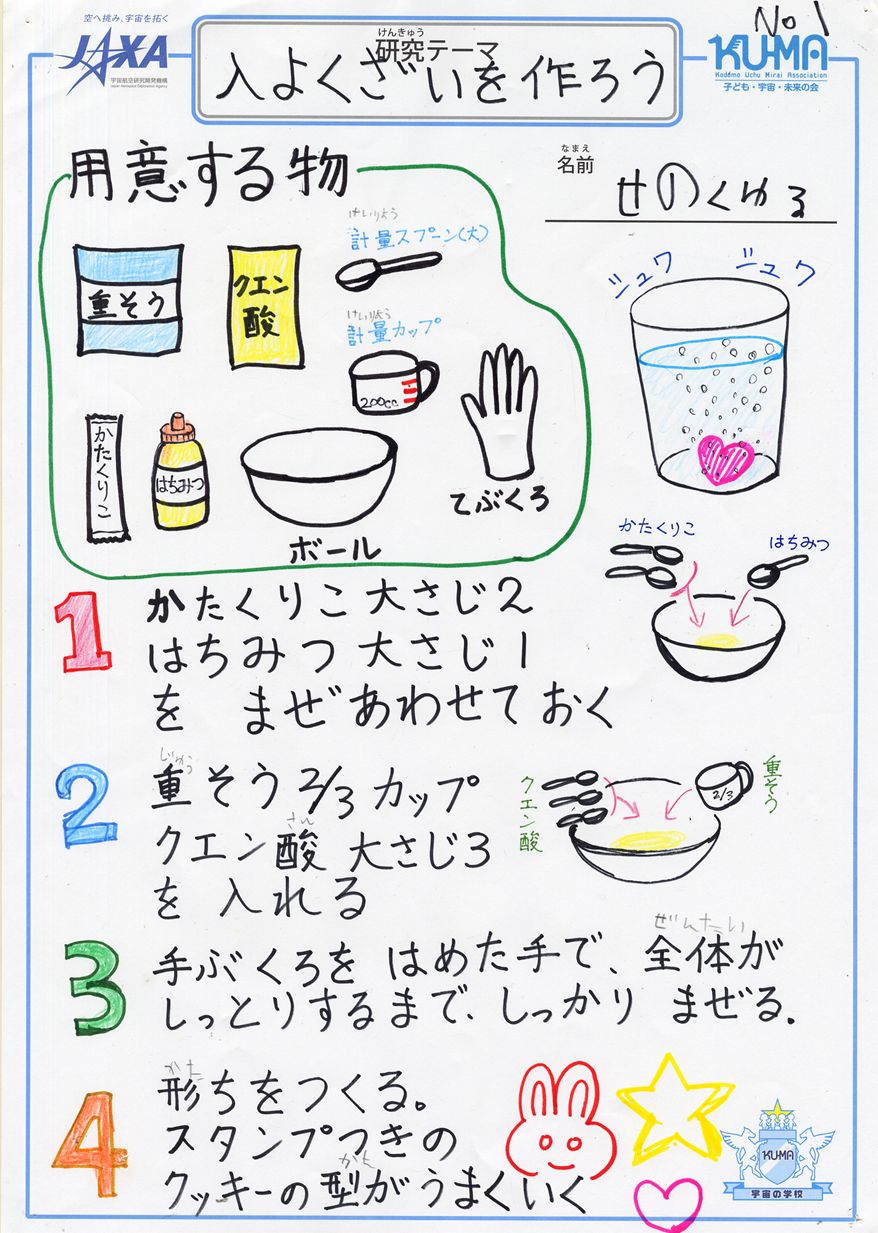 空へ挑み、宇宙を拓く
JAXA
宇宙航空研究開発機構
Japan Aerospace Exploration Agency
けんきゅう
研究テーマ
入よくざいを作ろう
No 1
KU-MA
Kodomo Uchu Mirai Association
子ども・宇宙・未来の会
なまえ
名前
せのくゆる
用意する物
重そう
クエン
酸
けいりよう
計量スプーン(大)
けいりよう
計量カップ
200cc
かたくりこ
はちみつ
ボール
てぶくろ
シュワ
シュワ
1
かたくりこ 大さじ2
はちみつ 大さじ1
を まぜあわせておく
かたくりこ
はちみつ
2
じゅう
重そう 2/3 カップ
さん
クエン酸 大さじ3
を 入れる
クエン酸
2/3
重そう
3
ぜんたい
手ぶくろを はめた手で、全体が
しっとりするまで、しっかり まぜる.
4
かた
形ちをつくる。
スタンプつきの
かん
クッキーの型がうまくいく
KU-MA
宇宙の学校